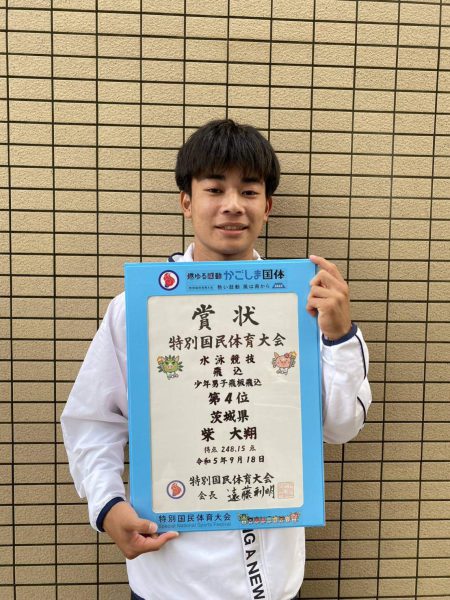 燃ゆる感動 かごしま国体
熱い鼓動 風は南から
賞状
特別国民体育大会
水泳競技
飛込
少年男子飛板飛込
第4位
茨城県
柴 大翔
得点 248.15 点
令和5年9月18日
特別国民体育大会
会長 遠藤利明
特別国民体育大会
Special National Sports Festival